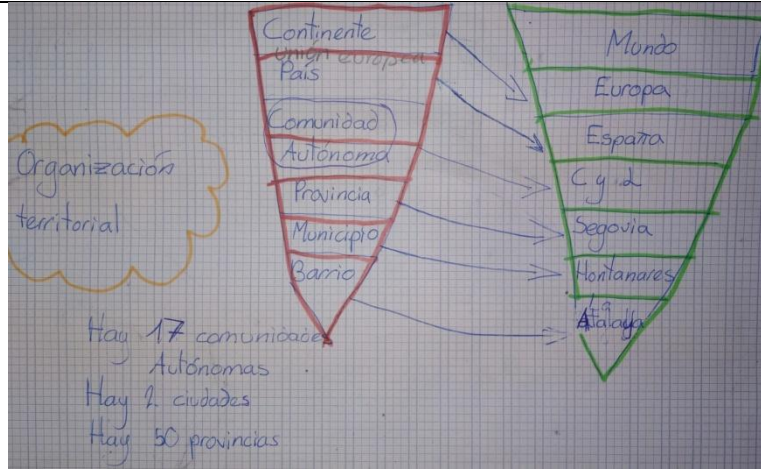 Organización
territorial
Continente
Unión europea
País
Comunidad
Autónoma
Provincia
Municipio
Barrio
Mundo
Europa
España
C y L
Segovia
Hontanares
Hay 17 comunidades
Autónomas
Hay 2 ciudades
Hay 50 provincias